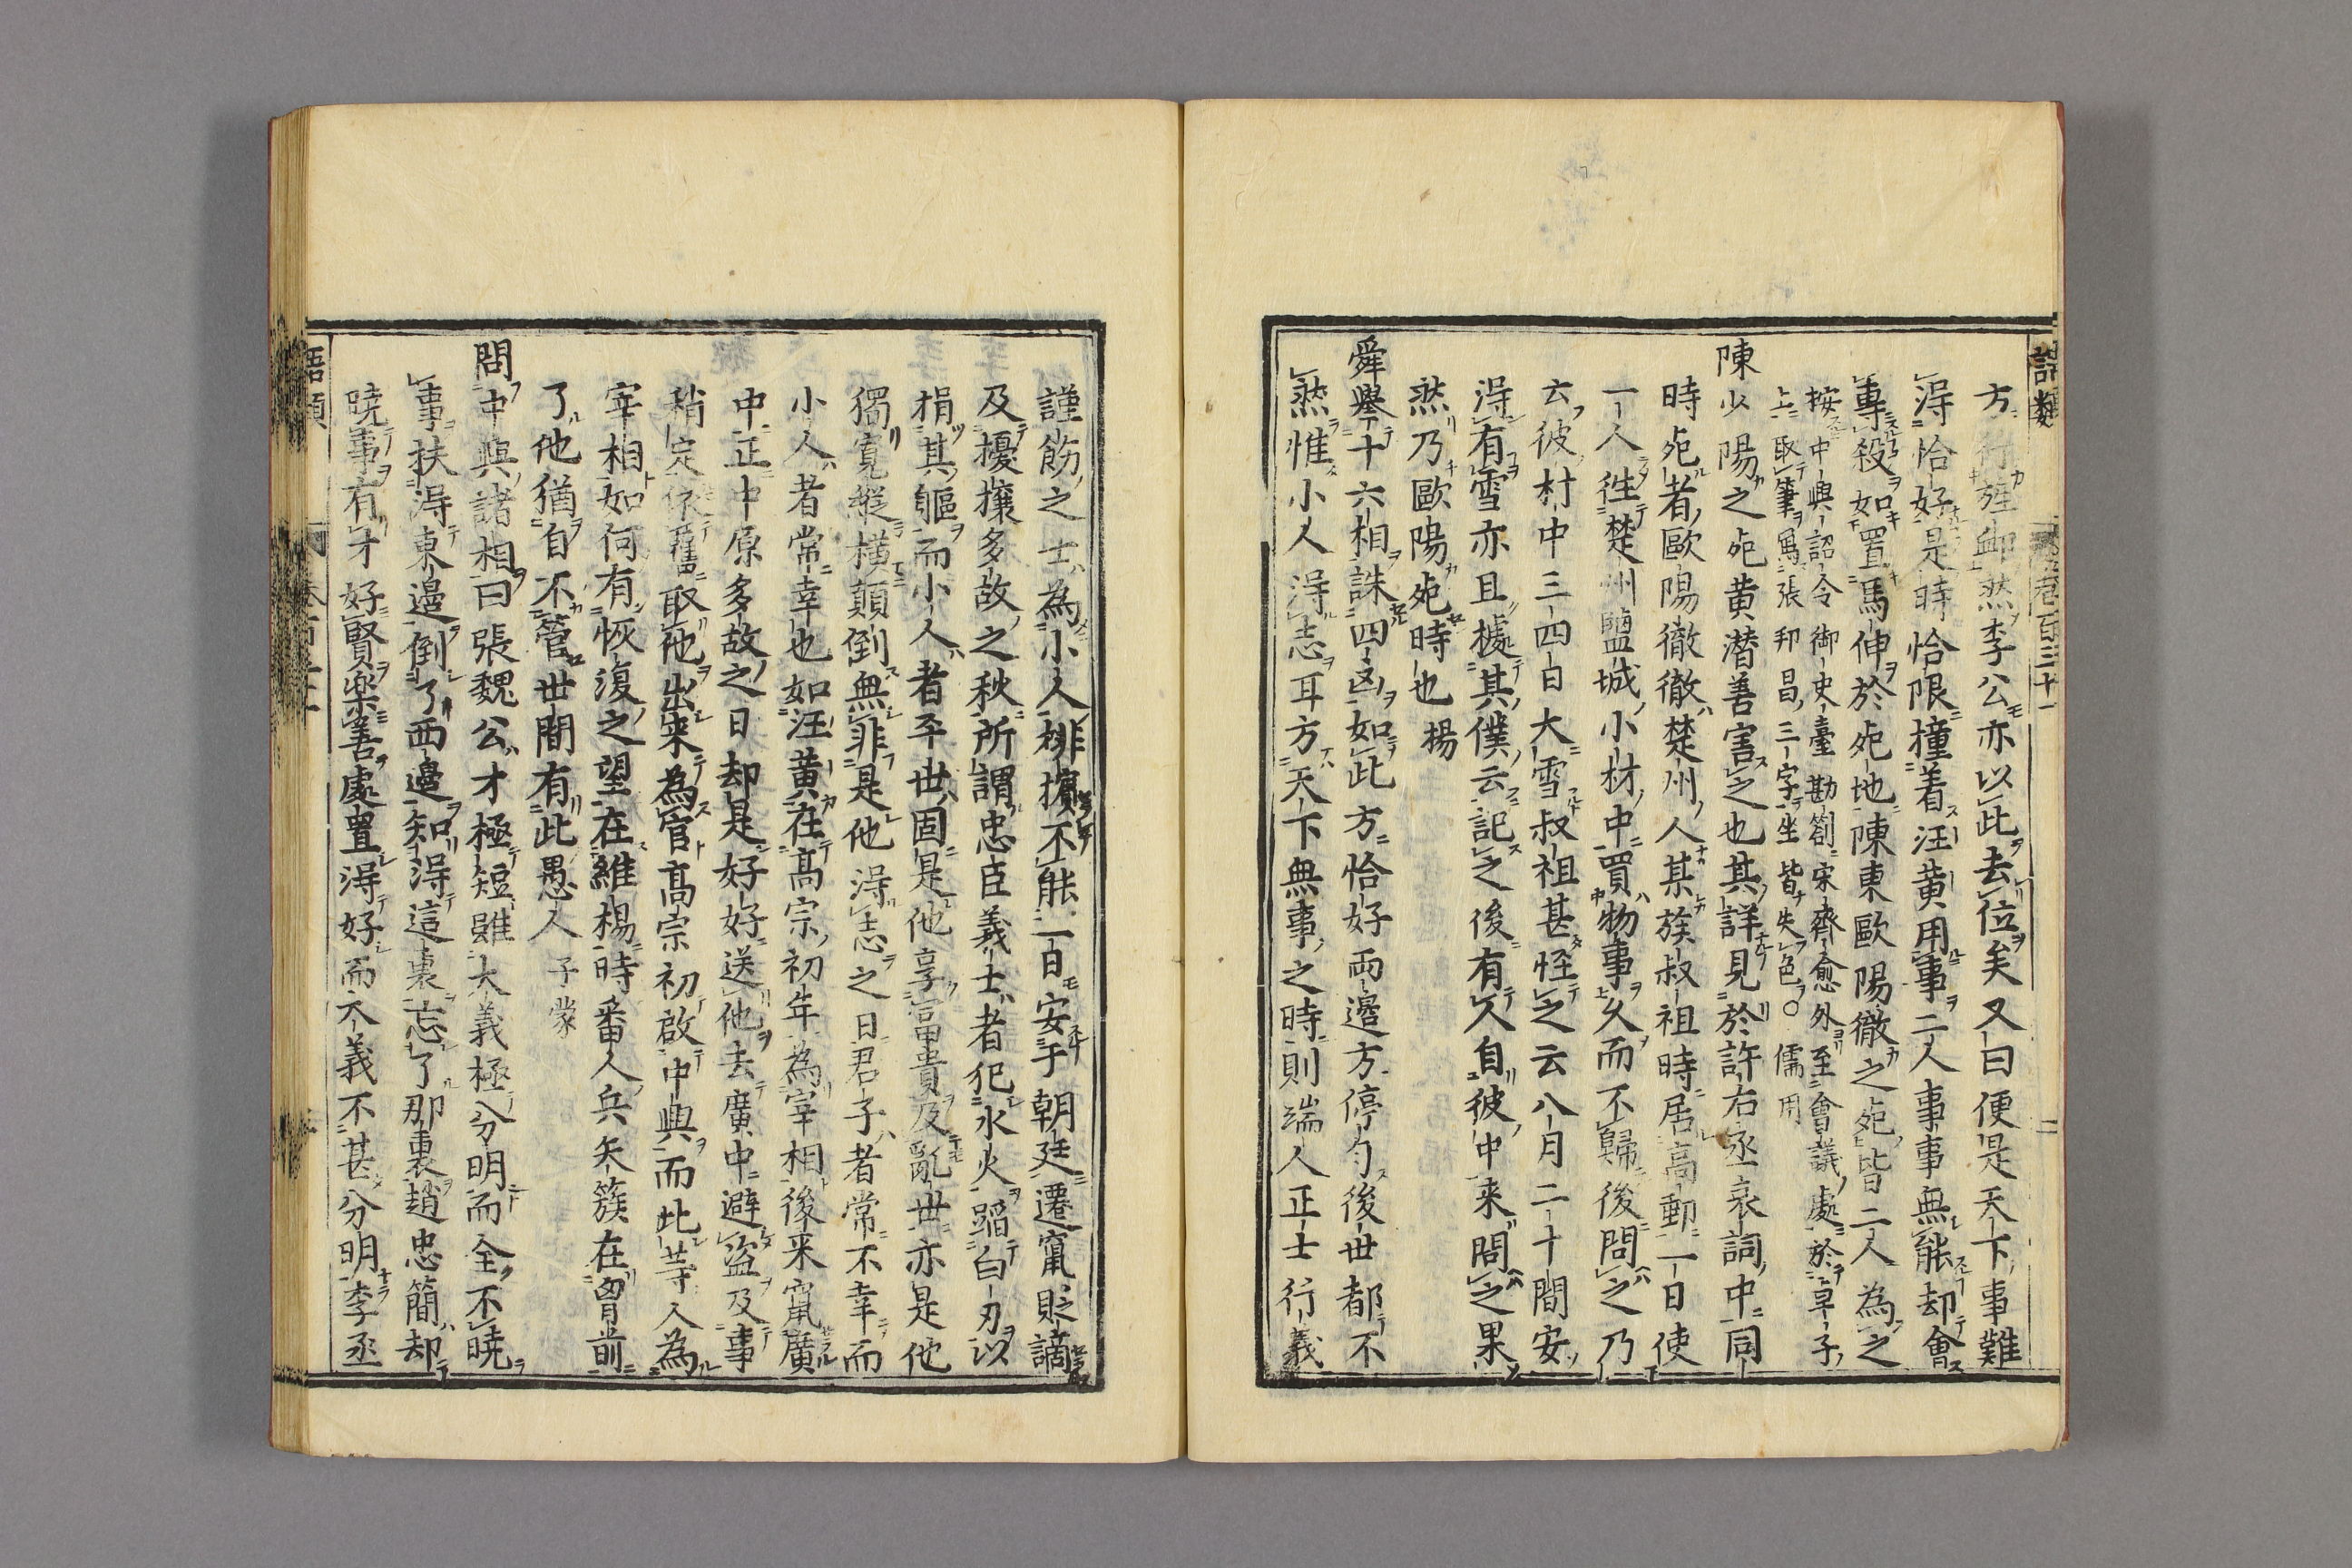 語類 卷百三十一 二
方行遣卹然李公亦以此去位矣又曰便是天下事難
得恰好是時恰限撞着汪黃用事二人事事無能却會
專殺如置馬伸於死地陳東歐陽徹之死皆二人為之
按中興詔令御史臺勘劄宋齊愈外至會議處於卓子
上取筆寫張邦昌三字坐皆失色○儒用
陳少陽之死黃潛善害之也其詳見於許右丞哀詞中同
時死者歐陽徹徹楚州人某族叔祖時居高郵一日使
一人往楚州鹽城小村中買物事久而不歸後問之乃
云彼村中三四日大雪叔祖甚怪之云八月二十間安
得有雪亦且據其僕云記之後有人自彼中来問之果
然乃歐陽死時也 揚
舜舉十六相誅四凶如此方恰好兩邊方停勻後世都不
然惟小人得志耳方天下無事之時則端人正士行義
謹飭之士為小人排擯不能一日安于朝廷遷竄貶謫
及擾攘多故之秋所謂忠臣義士者犯水火蹈白刃以
捐其軀而小人者平世固是他享富貴及亂世亦是他
獨寬縱橫顛倒無非是他得志之日君子者常不幸而
小人者常幸也如汪黃在高宗初年為宰相後来竄廣
中正中原多故之日却是好好送他去廣中避盜及事
稍定依舊取他出来為官高宗初啟中興而此等人為
宰相如何有恢復之望在維楊時番人兵矢簇在胷前
了他猶自不管世間有此愚人 子蒙
問中興諸相曰張魏公才極短雖大義極分明而全不曉
事扶得東邊倒了西邊知得這裏忘了那裏趙忠簡却
曉事有才好賢樂善處置得好而大義不甚分明李丞
語類